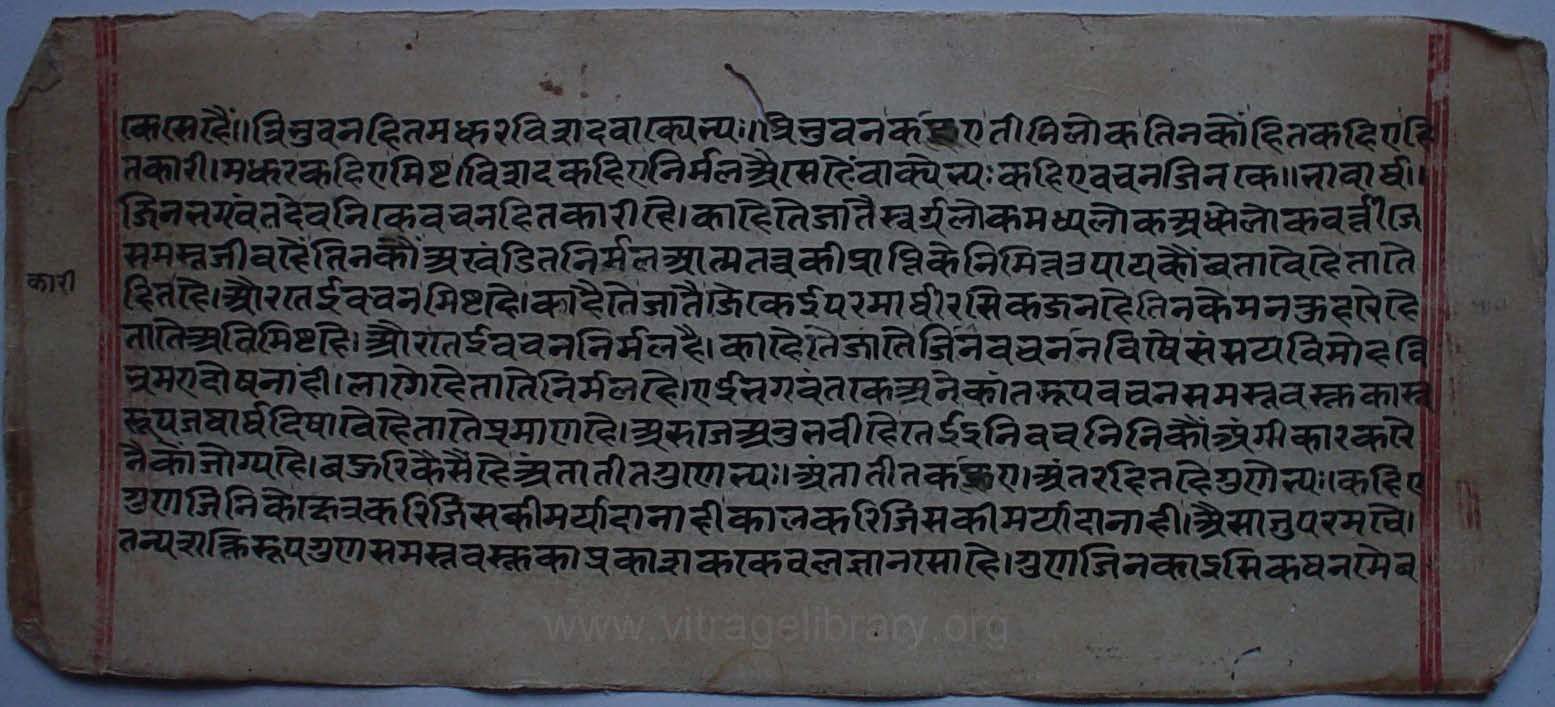 कैसे हैं॥ त्रिभुवनहितमधुरविशदवाक्येभ्यः॥ त्रिभुवन क ए तीनि लोक तिनकौं हित कहिए हि
तकारी। मधुर कहिए मिष्ट। विशद कहिए निर्मल ऐसे हैं वाक्येभ्यः कहिए वचन जिनके॥ भावार्थ॥
जिन भगवंत देवनिके वचन हितकारी है। काहेतै जातै स्वर्गलोक मध्यलोक अधोलोकवर्त्ती जे
समस्त जीव हैं तिनकौं अखंडित निर्मल आत्मतत्वकी प्राप्तिके निमित्त उपायकौं बतावै है तातै
कारी
हित है। और तेई वचन मिष्ट है। काहेतै जातै जे केई परमार्थी रसिकजन है तिनकै मनकू हरै है
तातै अति मिष्ट है। और तेई वचन निर्मल है। काहेतै जातै जिनवचनन विषै संसय विमोह वि
भ्रम ए दोष नांही। लागै है तातै निर्मल है। एई भगवंतके अनेकांतरूप वचन समस्त वस्तुका स्व
रूप जथार्थ दिषावै है तातै प्रमाण है। अनुभवी है तेई इनि वचनिनिकौं अंगीकार कर
नैकौं जोग्य है। बहुरि कैसै है अंतातीतगुणेभ्यः। अंतातीत क ए। अंतरहित है गुणेभ्यः। कहिए
गुण जिनिके क्षेत्रकरि जिसकी मर्यादा नाही कालकरि जिसकी मर्यादा नाही। ऐसा जु परम चै।
तन्यशक्तिरूप गुण समस्त वस्तुका प्रकाशक केवलज्ञान सो है। गुण जिनका इसि कथनमे व
www.vitragelibrary.org